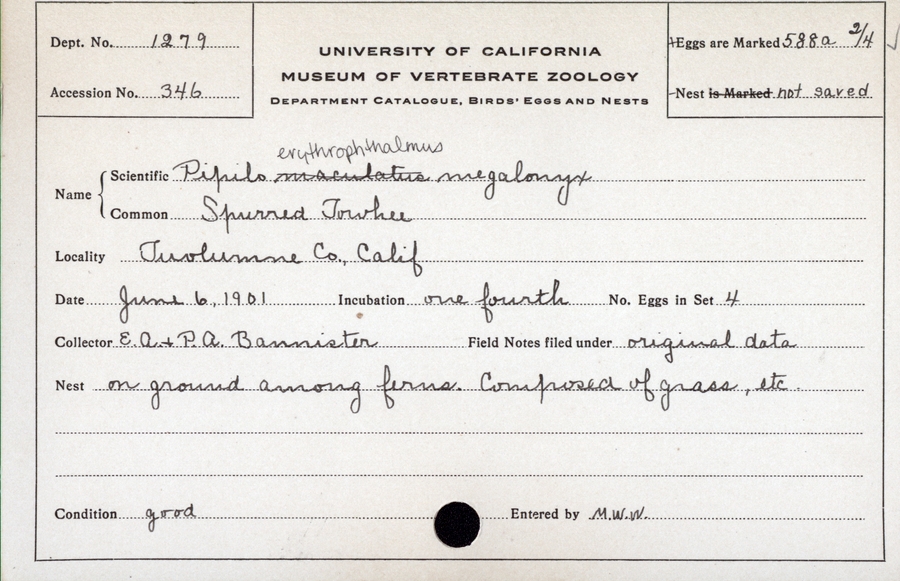 Dept. No. 1279
Accession No. 346
UNIVERSITY OF CALIFORNIA
MUSEUM OF VERTEBRATE ZOOLOGY
DEPARTMENT CATALOGUE, BIRDS' EGGS AND NESTS
Eggs are Marked 588a 2/4
Nest is Marked not saved
erythrophthalmus
Name Scientific Pipilo maculatus megalonyx
Common Spurred Towhee
Locality Tuolumne Co., Calif
Date June 6, 1901 Incubation one fourth No. Eggs in Set 4
Collector E.A. + P.A. Bannister Field Notes filed under original data
Nest on ground among ferns. Composed of grass, etc.
Condition good Entered by M.W.W.